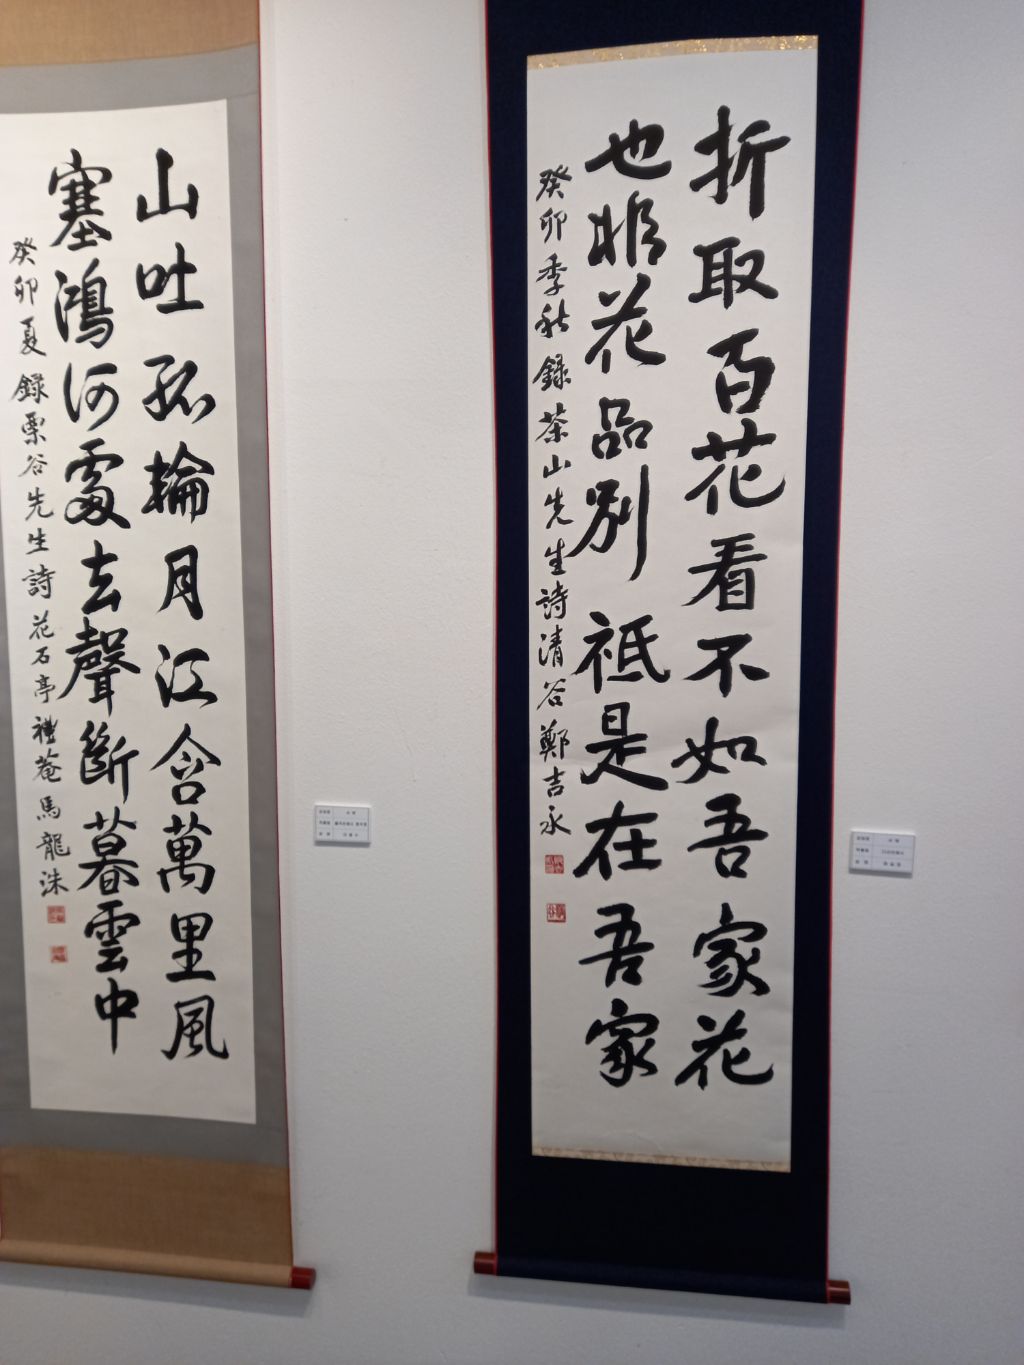 折取百花看不如吾家花
也非花品別祗是在吾家
癸卯季秋錄茶山先生詩清谷鄭吉永
山吐孤輪月江含萬里風
塞鴻何處去聲斷暮雲中
癸卯夏錄栗谷先生詩花石亭禮菴馬龍洙